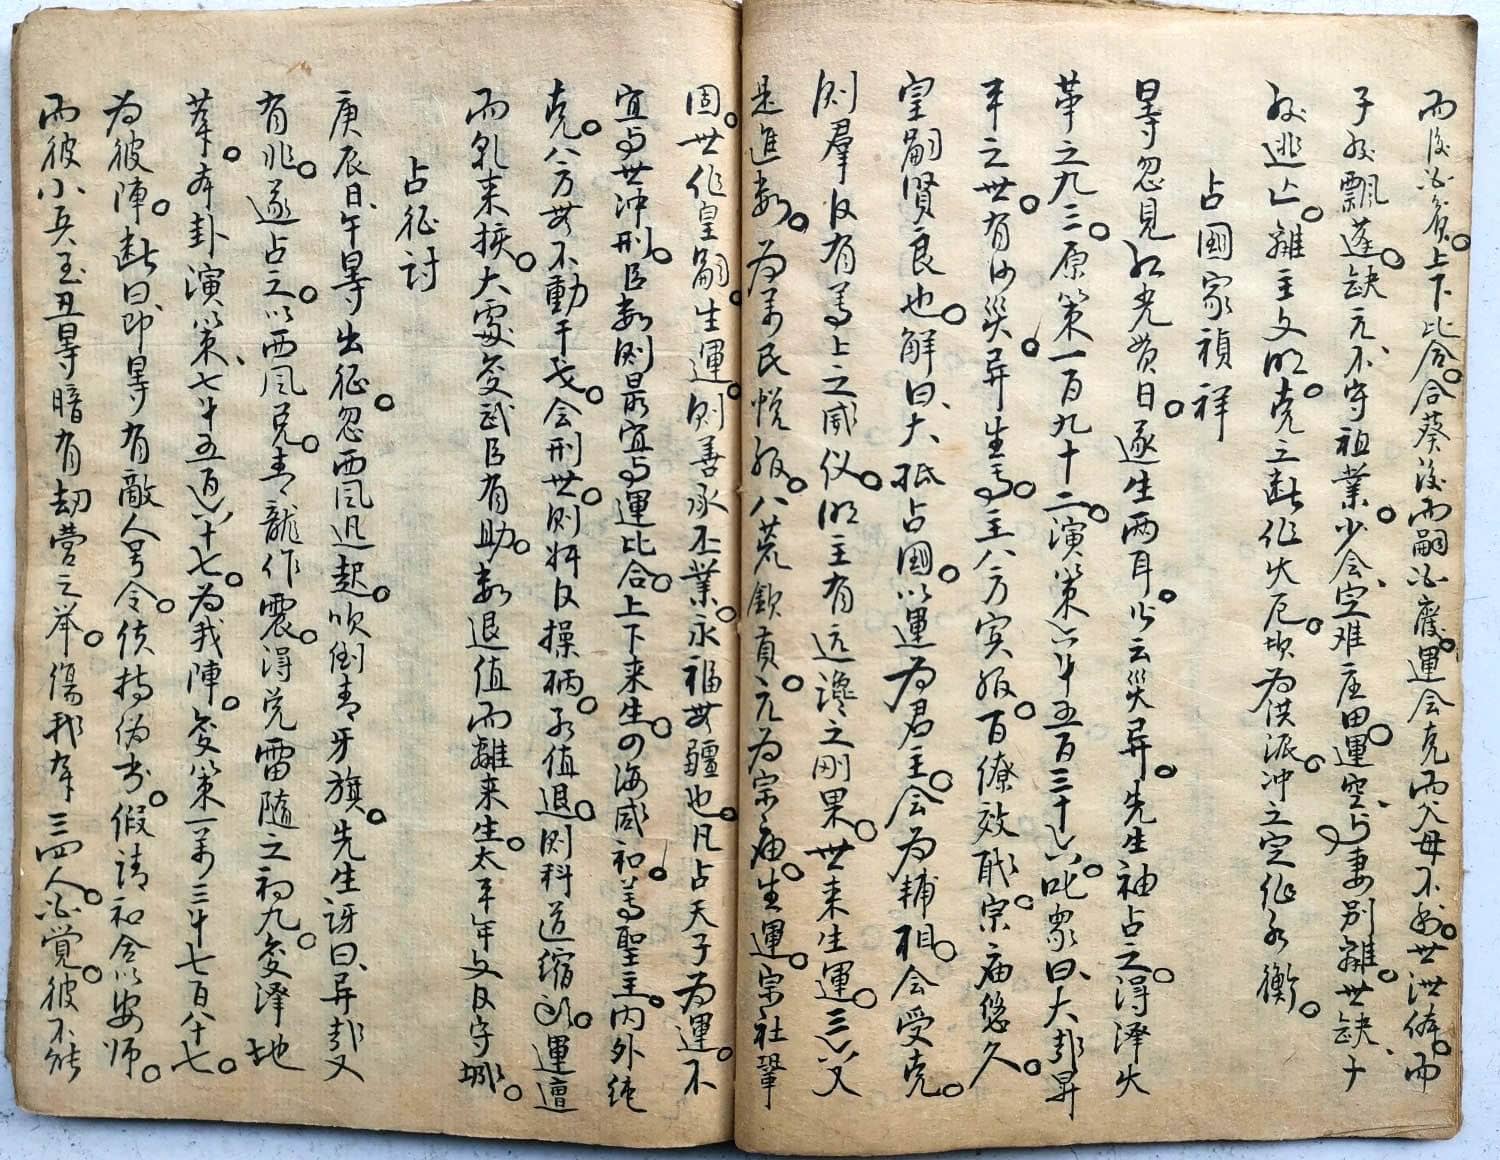 而後必育。上下比合。合葵後而嗣必廢。運会克而父母不利。世泄体。而
子孫飄蓬。缺元、不守祖業。少会、空难庄田。運空、与妻别離。世缺、子
孫逃亡。離主文明。克之断作火厄。坎為洪派冲之定作水衡。
占國家禎祥
昇等忽見紅光貫日。遂生两耳。必云災異。先生袖占之。得澤火
革之九三。原策一百九十二。演策六千五百三十六。叱衆曰、大哉昇
平之世。有何災異。生焉。主八方实服。百僚效職。宗庙悠久。
皇嗣賢良也。解曰、大抵占國。以運為君主。会為輔相。会受克。
则羣臣有善上之威仪。明主有远讒之刚果。世来生運。三公又
是進数。为萬民悦服。八荒欽貢。元为宗庙。生運。宗社鞏
固。世作皇嗣。生運。则善承丕業。永福無疆也。凡占天子为運。不
宜与世冲刑。臣数则最宜与運比合。上下来生。四海咸和。善聖主。内外純
克。八方無不動干戈。会刑世。则奸臣操柄。承值退。则科道缩頭。運亶
而乳来挨。大處変武臣有助。数退值而離来生。太平年文臣守城。
占征討
庚辰日、午昇等出征。忽西風迅起。吹倒青牙旗。先生訝曰、異哉又
有兆。遂占之。以西風克。青龍作震。得兑雷隨之初九。変澤地
萃。本卦演策、七千五百六十七。为我陣。変策一萬三千七百八十七。
为彼陣。断曰、即昇有敵人号令。使持偽书。假請和会以安师。
而彼小兵至丑昇暗有劫营之举。傷我軍三四人。必覚。彼不能